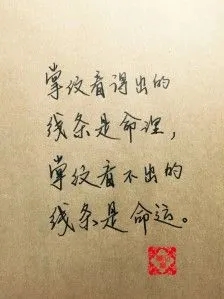 掌纹看得出的
线条是命理，
掌纹看不出的
线条是命运。